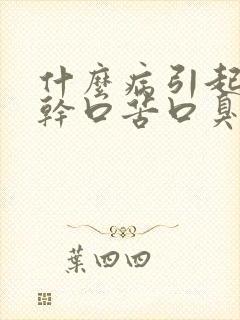 什麼病引起
幹口苦口臭
葉四四